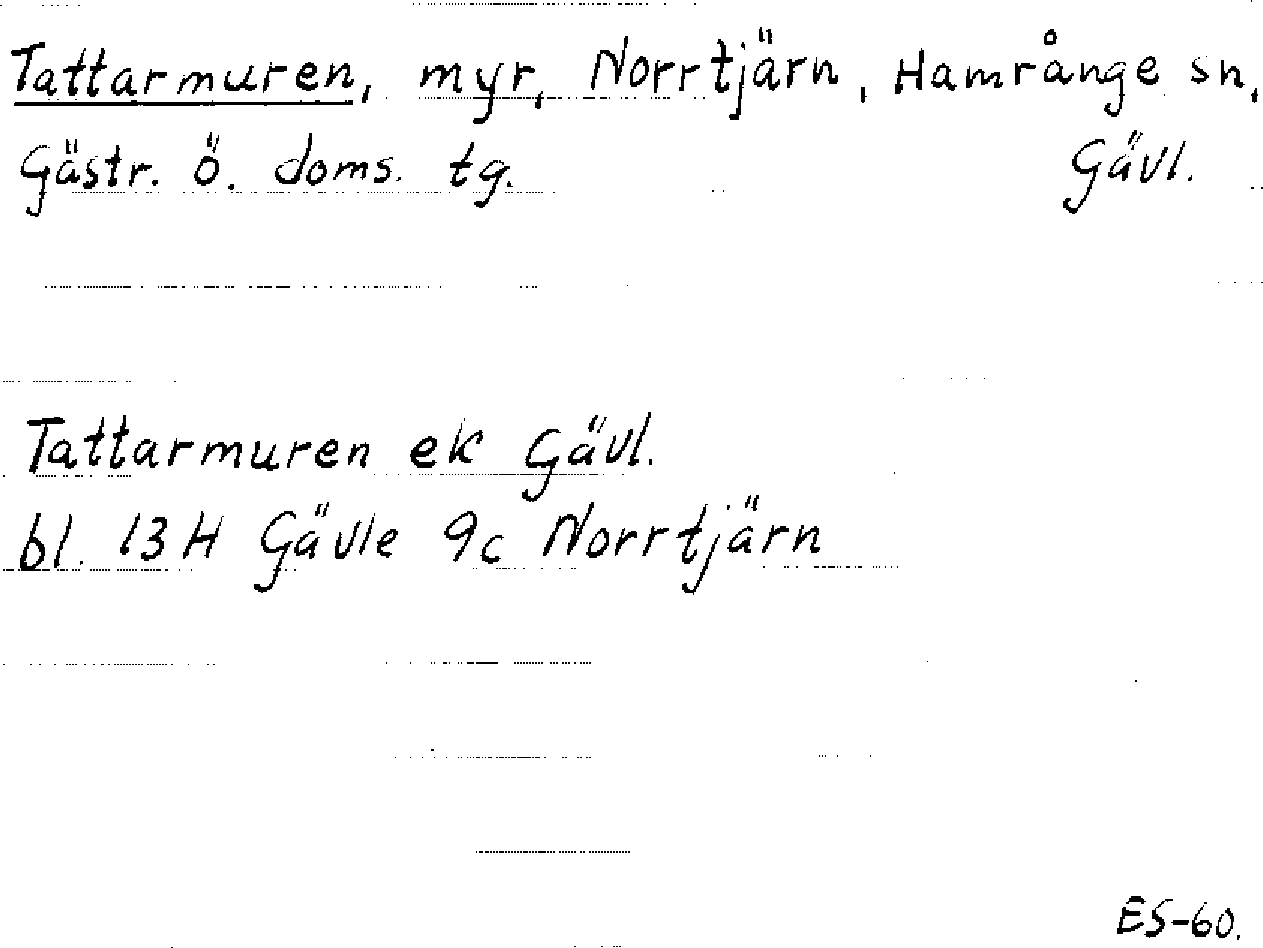 Tattarmuren, myr, Norrtjärn, Hamrånge sn,
Gästr. ö. doms. tg. Gävl.
Tattarmuren ek Gävl.
bl. 13 H Gävle 9c Norrtjärn
ES-60.